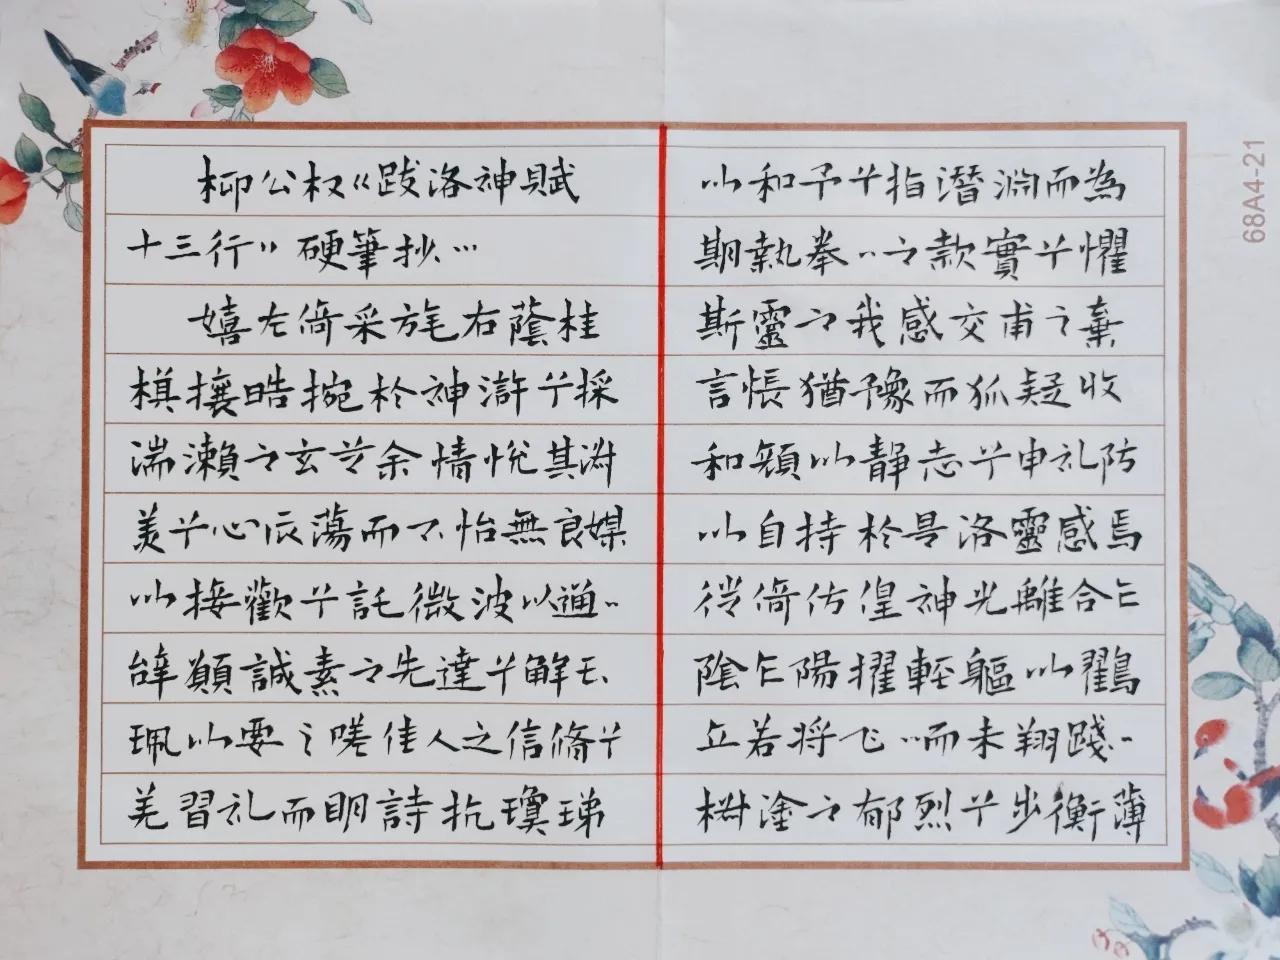 柳公权《跋洛神賦
十三行》硬筆抄…
嬉左倚采旄右蔭桂
棋攘皓捥於神滸兮採
湍瀨之玄芝余情悅其淑
美兮心辰蕩而不怡無良媒
以接歡兮託微波以通··
辞願誠素之先達兮解玉
珮以要之嗟佳人之信脩兮
羌習礼而明詩抗瓊珶
以和予兮指潛淵而為
期執拳··之款實兮懼
斯靈之我感交甫之棄
言悵猶豫而狐疑收
和顏以靜志兮申礼防
以自持於是洛靈感焉
徙倚仿偟神光離合乍
陰乍陽擢輕軀以鸖
立若将飞··而未翔踐··
椒塗之郁烈兮步衡薄
68A4-21